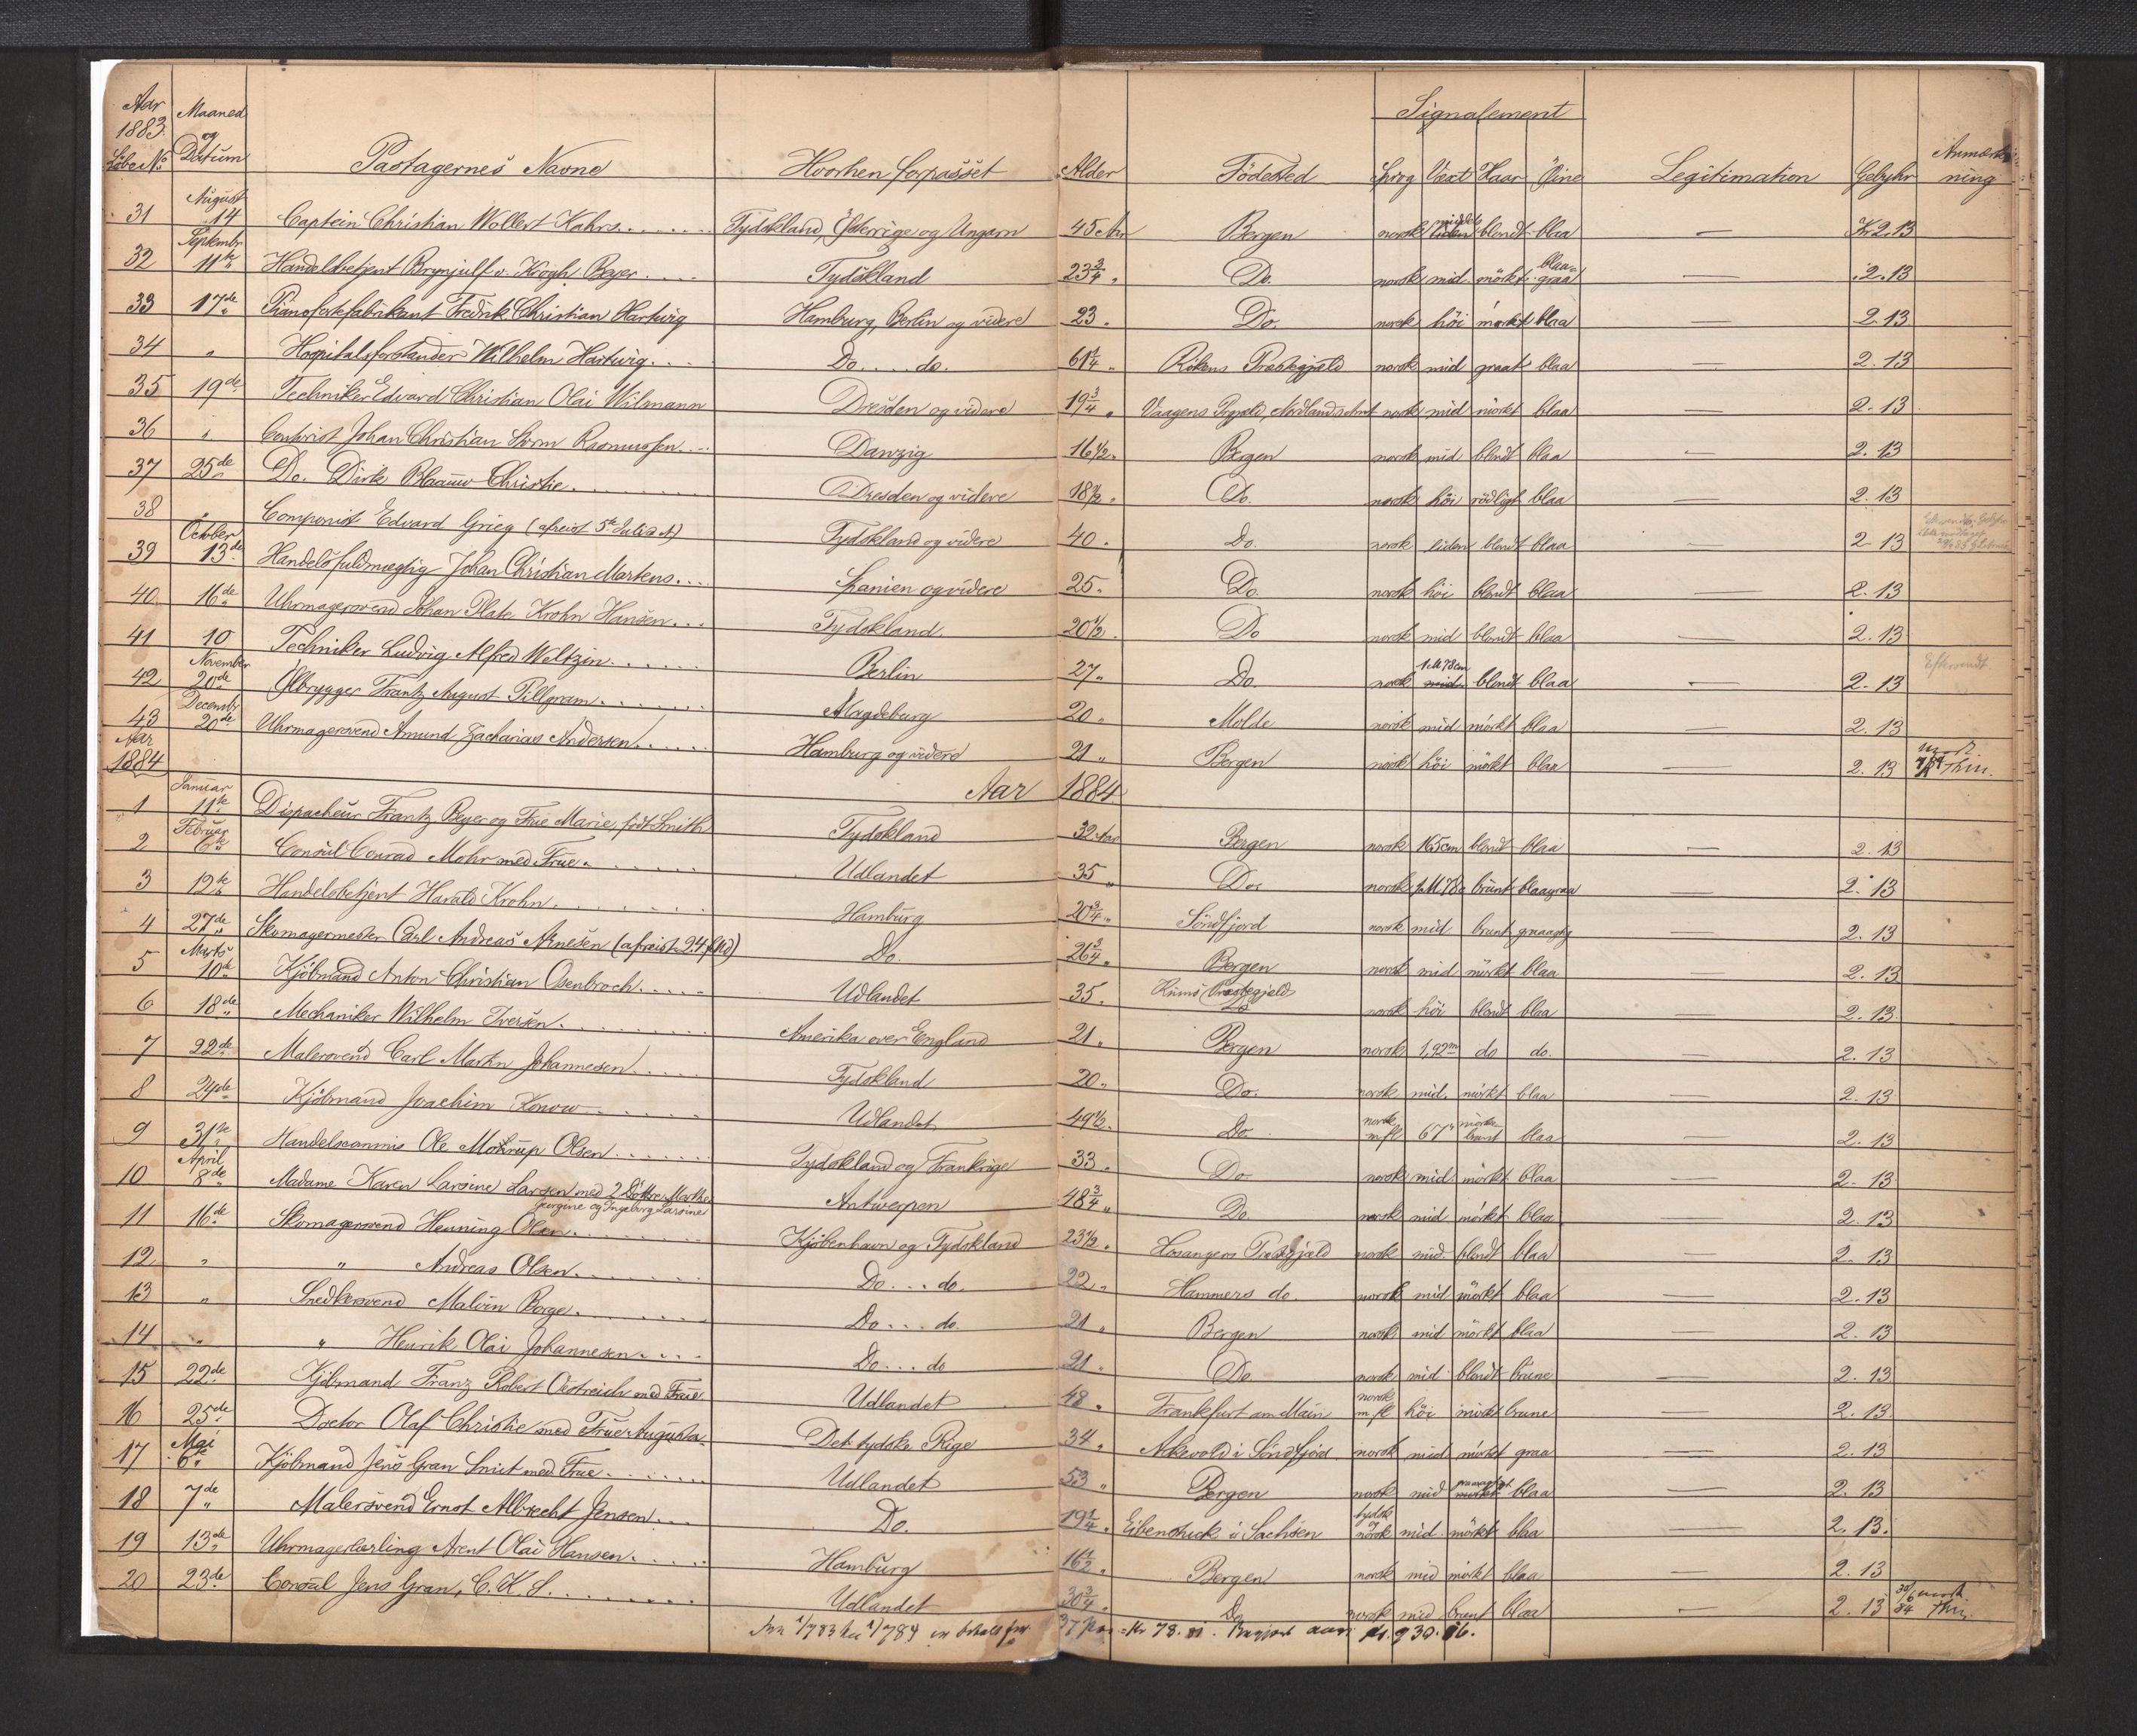 Aar 1883. Löbe No Maaned og Datum Pastagernes Navne Hvorhen forpasset Alder Födested Signalement Sprog Vext Haar Öine Legitimation Gebyhr Anmærkning
31 August 14 Captein Christian Wollert Kahrs Tydskland, Österrige og Ungarn 45 Aar Bergen norsk middels liden blondt blaa — Kr 2.13
32 Septembr 11te Handelsbetjent Brynjulf v. Krogh Beyer Tydskland 23 3/4 " Do. norsk mid. mörkt blaa-graa — 2.13
33 17de Pianofortefabrikant Fredrik Christian Hartwig Hamburg, Berlin og videre 23 " Do. norsk höi mörkt blaa — 2.13
34 " Hospitalsforstander Wilhelm Hartwig Do. do. 61 1/4 " Rökens Præstegjeld norsk mid graat blaa — 2.13
35 19de Techniker Edvard Christian Olai Wilmann Dresden og videre 19 3/4 " Vaagens Prgjeld, Nordlands Amt norsk mid mörkt blaa — 2.13
36 " Contorist Johan Christian Storm Rasmussen Danzig 16 1/2 " Bergen norsk mid blondt blaa — 2.13
37 25de Do. Dirk Blaauw Christie Dresden og videre 18 1/2 " Do. norsk höi rödligt blaa — 2.13
38 Componist Edvard Grieg (afreist 5te Juli d. A.) Tydskland og videre 40 " Do. norsk liden blondt blaa 2.13
39 October 13de Handelsfuldmægtig Johan Christian Martens Spanien og videre 25 " Do. norsk höi blondt blaa — 2.13
40 16de Uhrmagersvend Johan Plate Krohn Hansen Tydskland 20 1/2 " Do norsk mid blondt blaa — 2.13
41 10 Techniker Ludvig Alfred Weltzin Berlin 27 " Do. norsk 1 M 78 cm mid. blondt blaa — 2.13 Eftersendt
42 November 20de Ölbrygger Frantz August Pillgram Magdeburg 20 " Molde norsk mid mörkt blaa 2.13
43 Decembr 20de Uhrmagersvend Amund Zacharias Andersen Hamburg og videre 21 " Bergen norsk höi mörkt blaa 2.13
Aar 1884 Aar 1884
1 Januar 11te Dispacheur Frantz Beyer og Frue Marie, födt Smith Tydskland 32 Aar Bergen norsk 165 cm blondt blaa — 2.13
2 Februar 6te Consul Conrad Mohr med Frue Udlandet 35 " Do. norsk 1 M 78 c brunt blaagraa — 2.13
3 12te Handelsbetjent Harald Krohn Hamburg 20 3/4 " Söndfjord norsk mid brunt graaagtig — 2.13
4 27de Skomagermester Carl Andreas Arnesen (afreist 24 f. Md) Do. 26 3/4 " Bergen norsk mid mörkt blaa — 2.13
5 Marts 10de Kjöbmand Anton Christian Osenbroch Udlandet 35 " Kinns Præstegjeld norsk höi blondt blaa — 2.13
6 18de Mechaniker Wilhelm Iversen Amerika over England 21 " Bergen norsk 1,92m do do. — 2.13
7 22de Malersvend Carl Martin Johannesen Tydskland 20 " Do. norsk mid. mörkt blaa — 2.13
8 24de Kjöbmand Joachim Konow Udlandet 49 1/2 " Do. norsk m.fl. 67" mörke brunt blaa — 2.13
9 31te Handelscommis Ole Mohrup Olsen Tydskland og Frankrige 33 " Do. norsk mid mörkt blaa — 2.13
10 April 8de Madame Karen Larsine Larsen med 2 Döttre Marthe Georgine og Ingeborg Larsine Antwerpen 48 3/4 " Do. norsk mid mörkt blaa — 2.13
11 16de Skomagersvend Henning Olsen Kjöbenhavn og Tydskland 23 1/2 " Hosangers Præstegjeld norsk mid blondt blaa — 2.13
12 " " Andreas Olsen Do. do. 22 " Hammers do. norsk mid mörkt blaa — 2.13
13 " Snedkersvend Malvin Borge Do. do. 21 " Bergen norsk mid mörkt blaa — 2.13
14 " " Henrik Olai Johannesen Do. do 21 " Do. norsk mid blondt brune — 2.13
15 22de Kjöbmand Franz Robert Oestreich med Frue Udlandet 48 " Frankfurt am Main norsk m.fl höi mörkt brune — 2.13
16 25de Doctor Olaf Christie med Frue Augusta Det tydske Rige 34 " Askevold i Söndfjord norsk mid mörkt graa — 2.13
17 Mai 6te Kjöbmand Jens Gran Smit med Frue Udlandet 53 " Bergen norsk mid graaagtigt mörkt blaa — 2.13
18 7de Malersvend Ernst Albrecht Jensen Do. 19 1/4 " Eibenstück i Sachsen tydsk og norsk mid mörkt blaa — 2.13.
19 13de Uhrmagerlærling Arent Olai Hansen Hamburg 16 1/2 " Bergen norsk mid mörkt blaa — 2.13
20 23de Consul Jens Gran, C. K. S. Udlandet 30 3/4 " Do. norsk mid brunt blaa — 2.13
1/7 83 1/7 84 37 = Kr 78. 81.